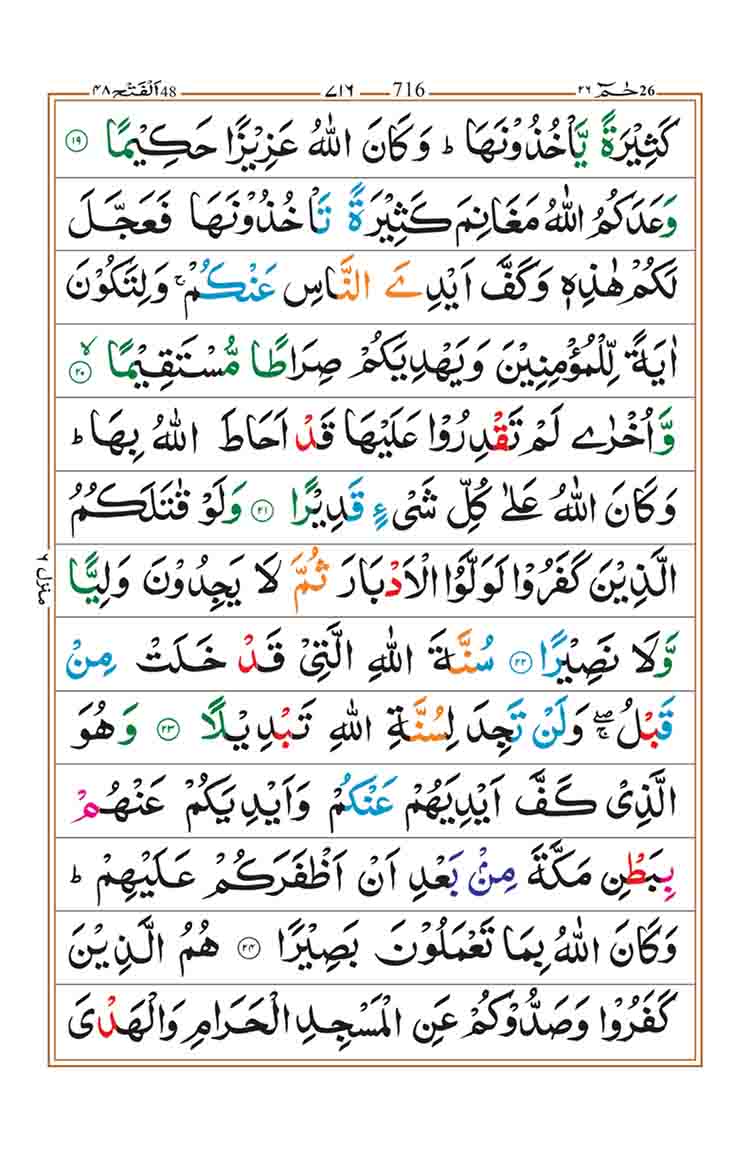 48 اَلْفَتْح ٤٨ 716 ٧١٦ 26 حٰمٓ ٢٦
كَثِيْرَةً يَّاْخُذُوْنَهَا ؕ وَكَانَ اللّٰهُ عَزِيْزًا حَكِيْمًا ۱۹
وَعَدَكُمُ اللّٰهُ مَغَانِمَ كَثِيْرَةً تَاْخُذُوْنَهَا فَعَجَّلَ
لَكُمْ هٰذِهٖ وَكَفَّ اَيْدِيَ النَّاسِ عَنْكُمْ ۚ وَلِتَكُوْنَ
اٰيَةً لِّلْمُؤْمِنِيْنَ وَيَهْدِيَكُمْ صِرَاطًا مُّسْتَقِيْمًا ۙ ۲۰
وَّاُخْرٰى لَمْ تَقْدِرُوْا عَلَيْهَا قَدْ اَحَاطَ اللّٰهُ بِهَا ؕ
وَكَانَ اللّٰهُ عَلٰى كُلِّ شَيْءٍ قَدِيْرًا ۲۱ وَلَوْ قٰتَلَكُمُ
الَّذِيْنَ كَفَرُوْا لَوَلَّوُا الْاَدْبَارَ ثُمَّ لَا يَجِدُوْنَ وَلِيًّا
وَّلَا نَصِيْرًا ۲۲ سُنَّةَ اللّٰهِ الَّتِيْ قَدْ خَلَتْ مِنْ
قَبْلُ ۖۚ وَلَنْ تَجِدَ لِسُنَّةِ اللّٰهِ تَبْدِيْلًا ۲۳ وَهُوَ
الَّذِيْ كَفَّ اَيْدِيَهُمْ عَنْكُمْ وَاَيْدِيَكُمْ عَنْهُمْ
بِبَطْنِ مَكَّةَ مِنْۢ بَعْدِ اَنْ اَظْفَرَكُمْ عَلَيْهِمْ ؕ
وَكَانَ اللّٰهُ بِمَا تَعْمَلُوْنَ بَصِيْرًا ۲۴ هُمُ الَّذِيْنَ
كَفَرُوْا وَصَدُّوْكُمْ عَنِ الْمَسْجِدِ الْحَرَامِ وَالْهَدْيَ
منزل ٦